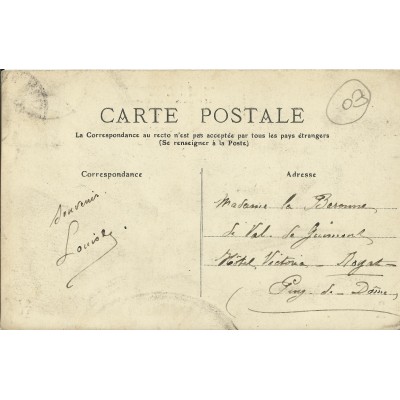 03
CARTE POSTALE
La Correspondance au recto n'est pas acceptée par tous les pays étrangers
(Se renseigner à la Poste)
Correspondance
Souvenir.
Louise.
Adresse
Madame la Baronne
de Val de
Hôtel Victoria - Royat
Puy-de-Dôme